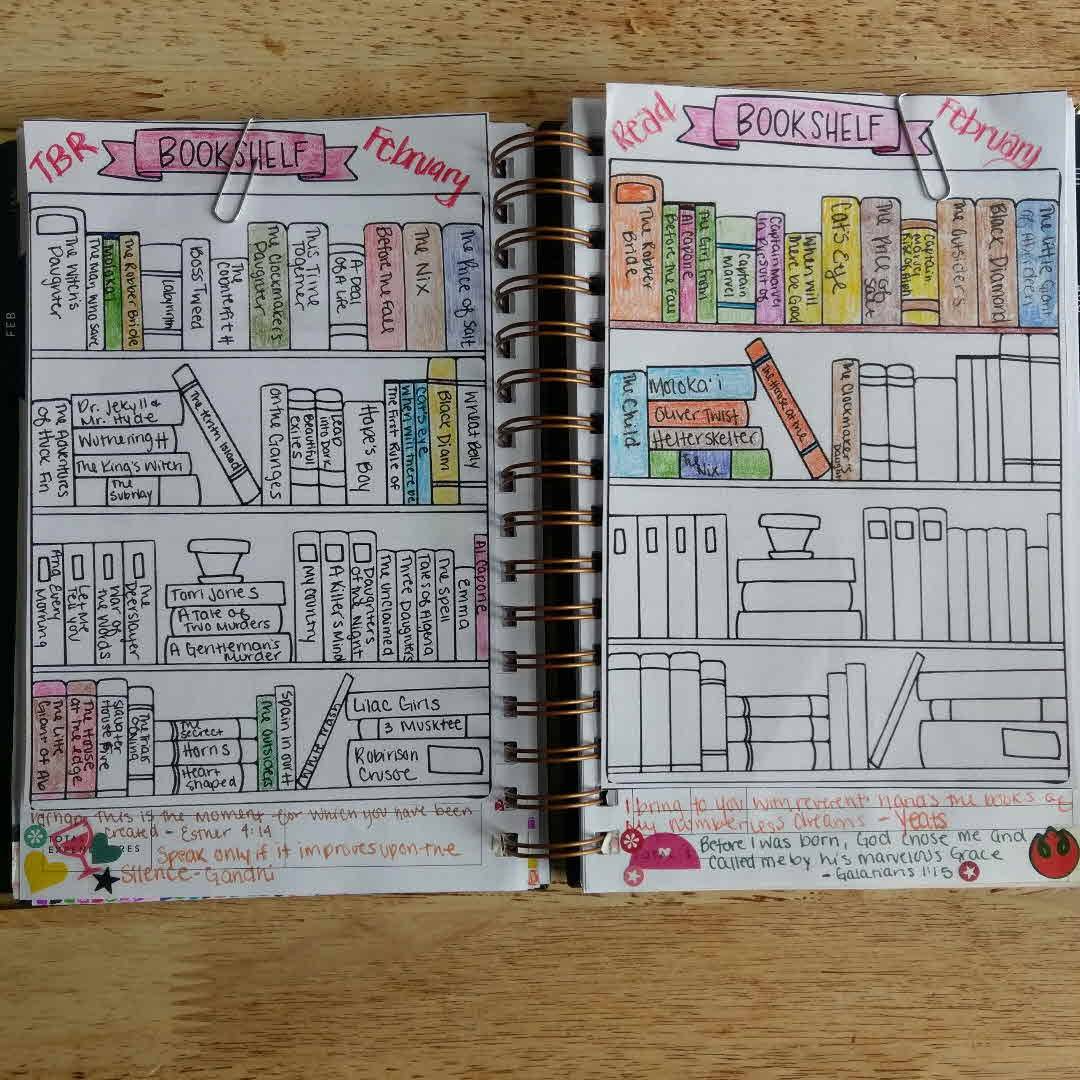 FEB
TBR
BOOKSHELF
February
The Witch's Daughter
The Man Who Save
Moloka'i
The Robber Bride
Labyrinth
Boss Tweed
The Clockmaker's Daughter
This Time Together
A Dual of a Life
Before the Fall
The Nix
The Price of Salt
The Adventures of Huck Fin
Dr. Jekyll & Mr. Hyde
Wuthering H
The King's Witch
The Subway
The Tenth Island
On the Ganges
Beautiful Exiles
Leap into Dark
Hope's Boy
The First Rule of
When will there be
Cat's eye
Black Diam
Wheat Belly
Ana Every Morning
Let Me Tell You
The War of the Worlds
The Deerslayer
Tom Jones
A Tale of Two Murders
A Gentleman's Murder
My Country
A Killer's Mind
Daughters of the Night
The Unclaimed
Three Daughters
Tales of Algeria
The Spell
Emma
Al Capone
The Little Giant of Ab
The House at the Edge
Slaughter House Five
The secret
Horns
Heart shaped
The Outsiders
Spain in our H
White Trash
Lilac Girls
3 Musktee
Robinson Crusoe
this is the moment for which you have been created - Esther 4:14
Speak only if it improves upon the
Silence - Gandhi
TOTAL EXPENDITURES
Read
BOOKSHELF
February
The Robber Bride
Before the Fall
Al Capone
The Girl from
Captain Marvel
Captain Marvel in Pursuit of
When will there be Good
Cat's Eye
The Price of Salt
Captain Marvel
The Outsiders
Black Diamond
The Little Giant of Aberdeen
The Child
Moloka'i
Oliver Twist
Helter Skelter
The Nix
The House at the
The Clockmaker's Daughter
I bring to you with reverent hands the books of
my numberless dreams - Yeats
Before I was born, God chose me and
called me by his marvelous Grace
- Galatians 1:15